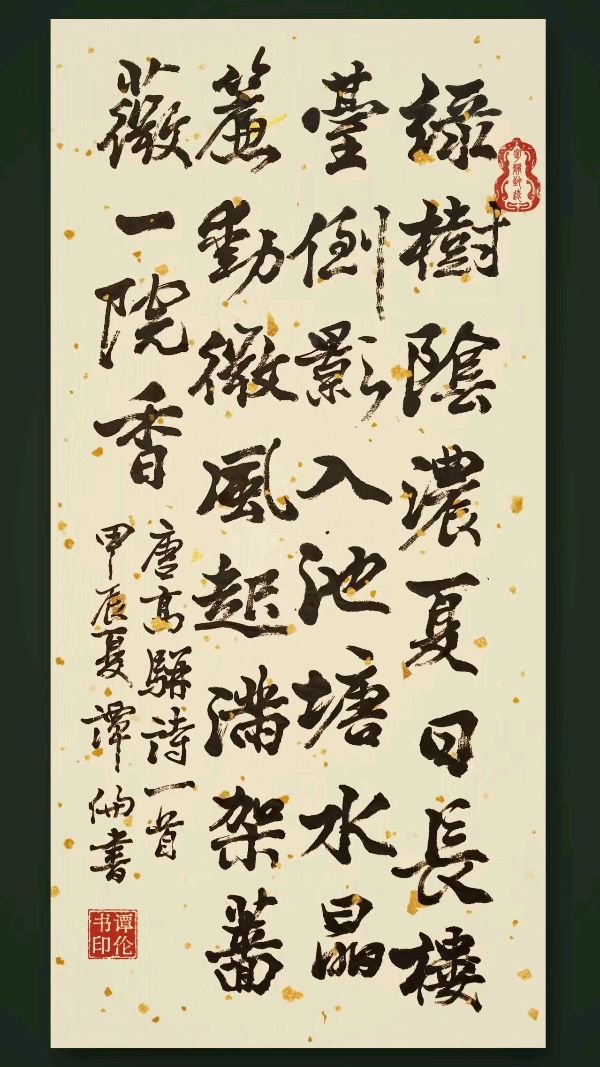 緑樹陰濃夏日長樓
臺倒影入池塘水晶
簾動微風起滿架薔
薇一院香
唐高駢詩一首
甲辰夏譚倫書
谭伦
书印